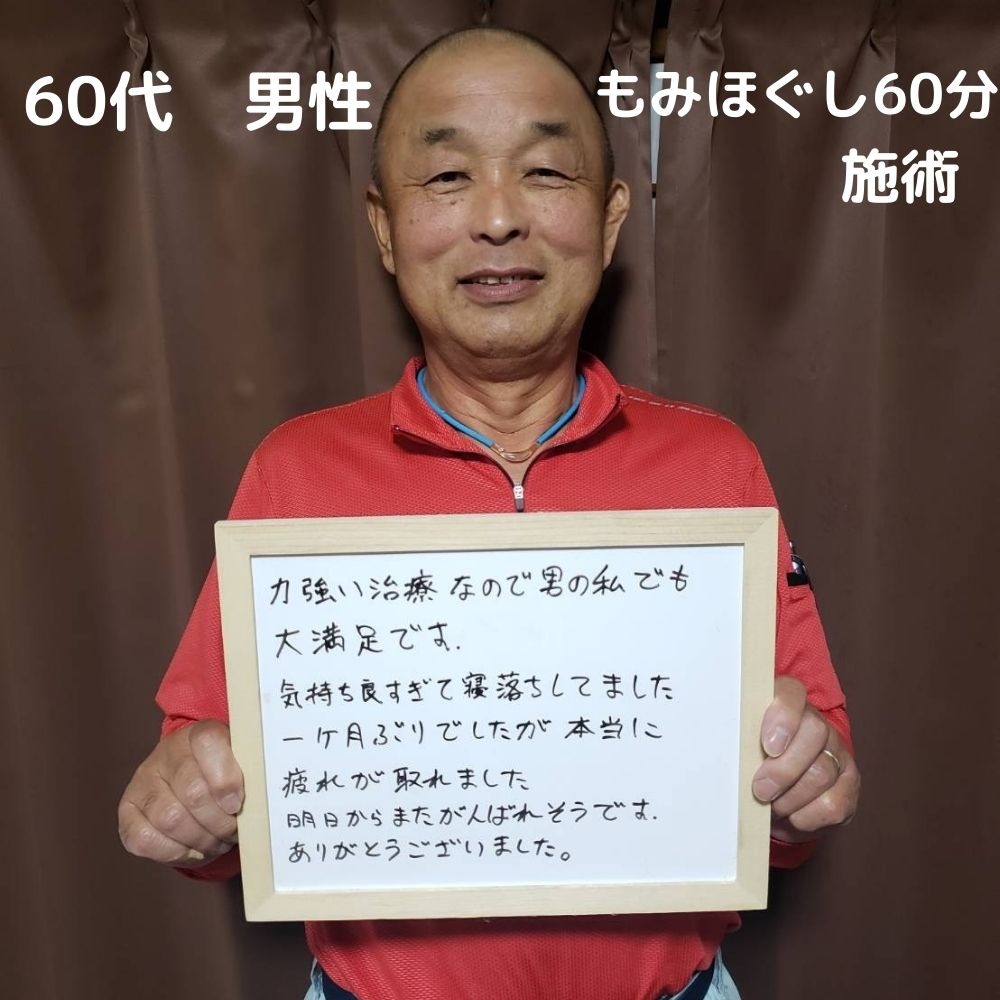 60代 男性
もみほぐし60分
施術
力強い治療なので男の私でも
大満足です.
気持ち良すぎて寝落ちしてました
一ケ月ぶりでしたが本当に
疲れが取れました
明日からまたがんばれそうです.
ありがとうございました。